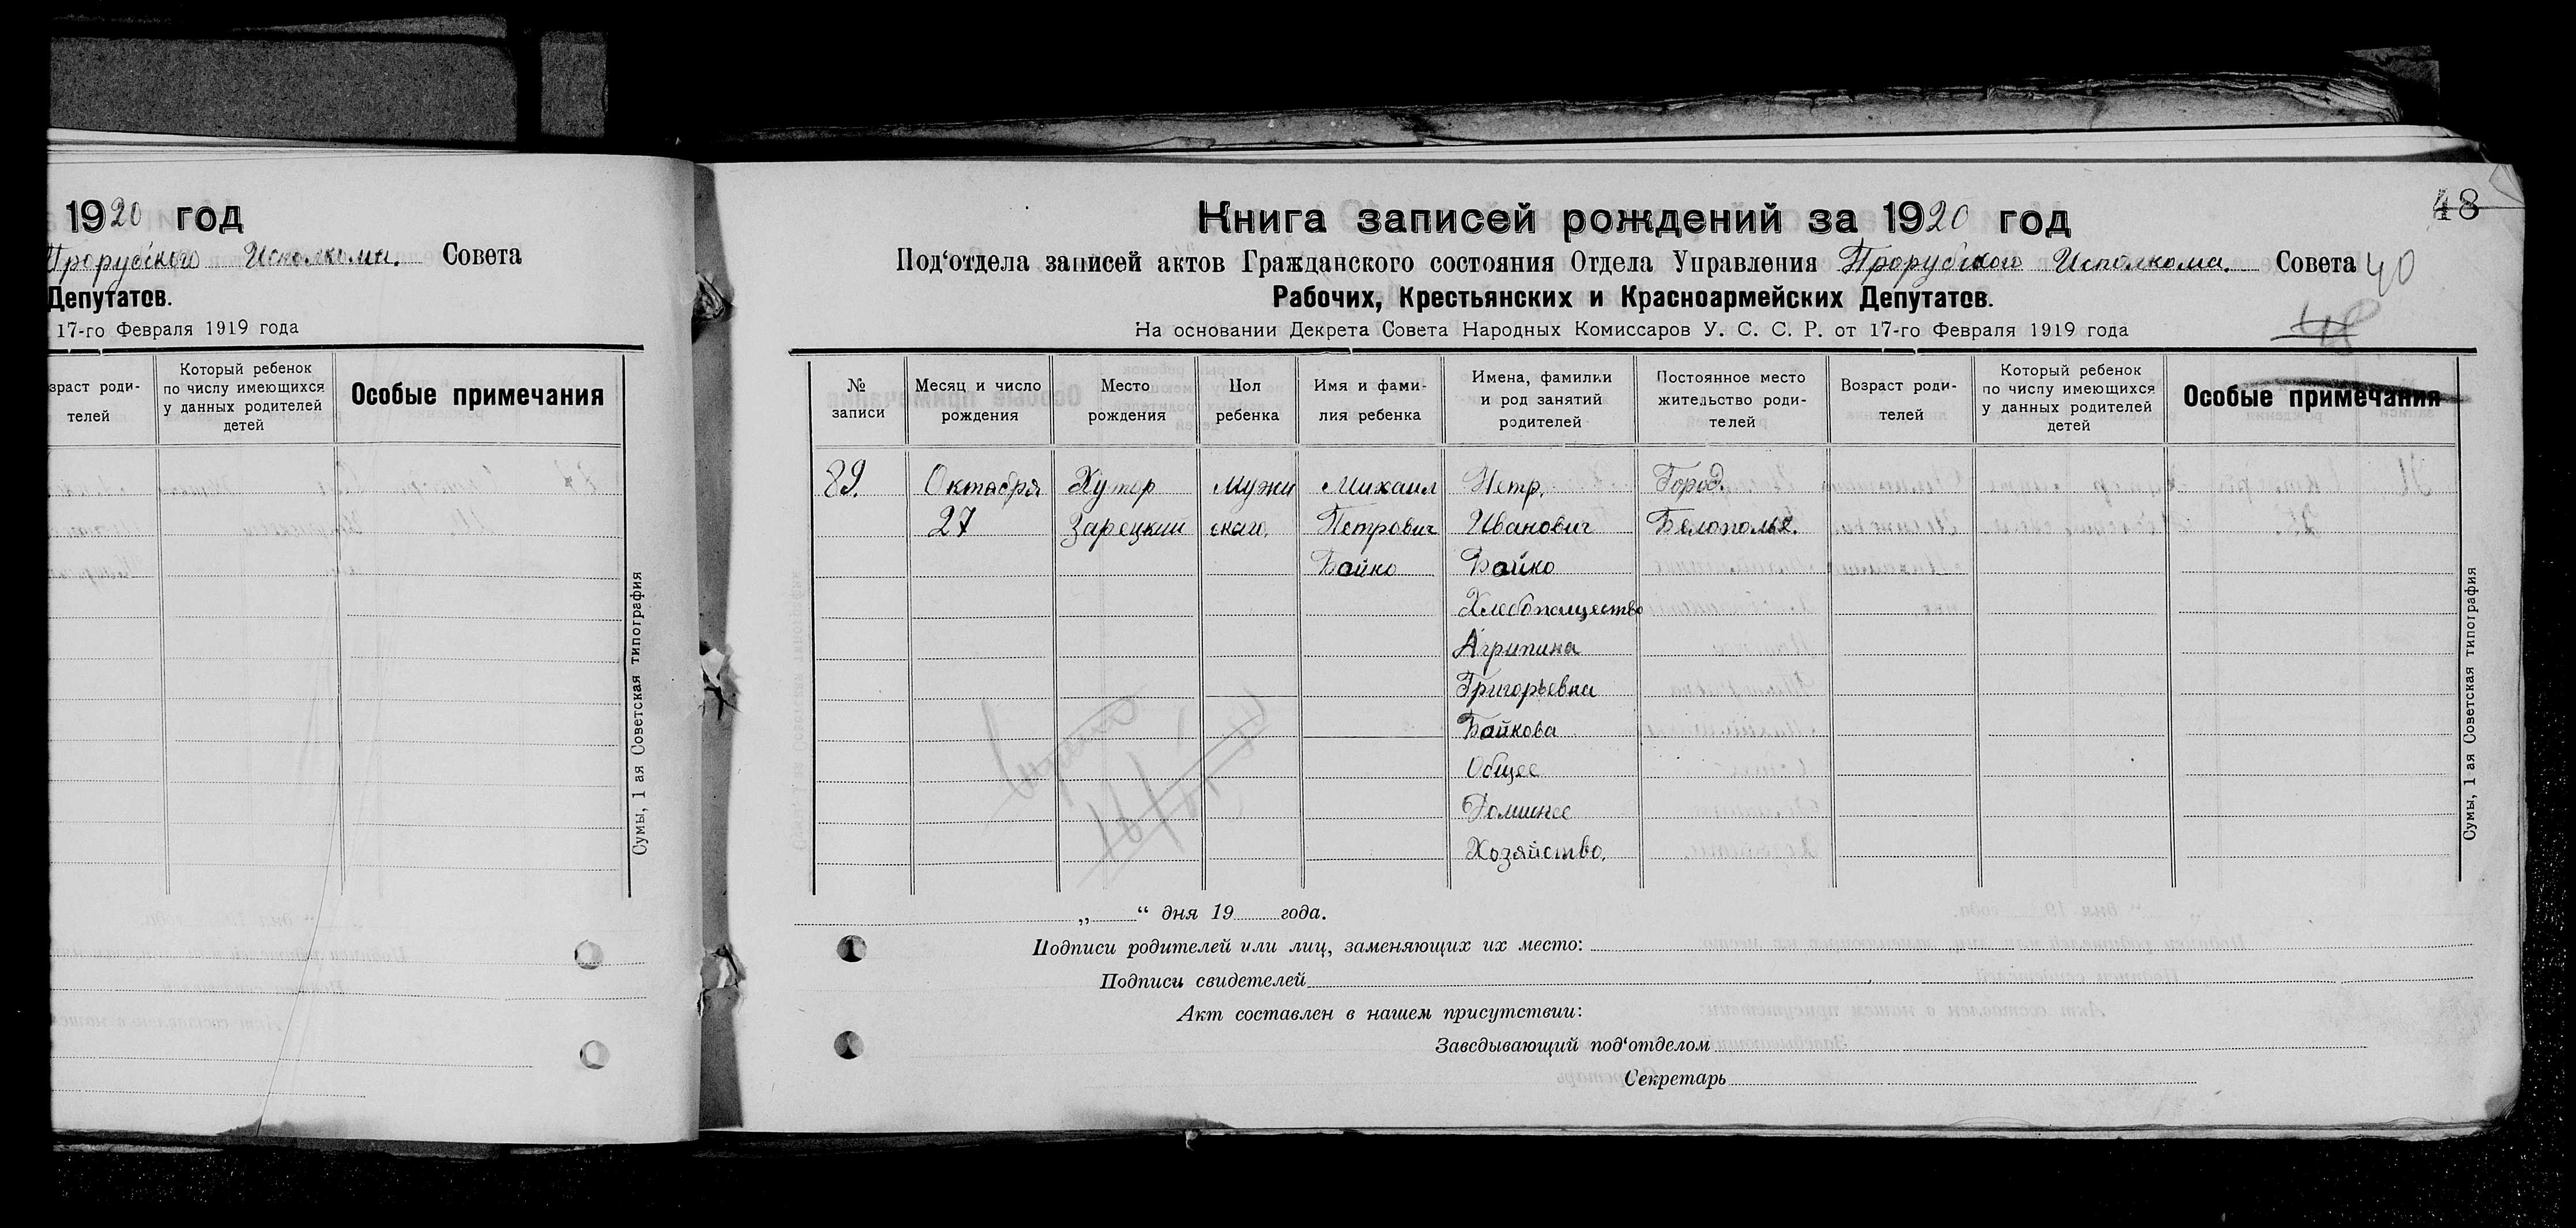 1920 год
Прорубского Исполкома. Совета
Депутатов.
17-го Февраля 1919 года
зраст роди-
телей
Который ребенок
по числу имеющихся
у данных родителей
детей
Особые примечания
Сумы, 1 ая Советская типография
48
Книга записей рождений за 1920 год
Под‘отдела записей актов Гражданского состояния Отдела Управления Прорубского Исполкома. Совета 40
Рабочих, Крестьянских и Красноармейских Депутатов.
На основании Декрета Совета Народных Комиссаров У. С. С. Р. от 17-го Февраля 1919 года
48
№
записи
Месяц и число
рождения
Место
рождения
Пол
ребенка
Имя и фами-
лия ребенка
Имена, фамилии
и род занятий
родителей
Постоянное место
жительство роди-
телей
Возраст роди-
телей
Который ребенок
по числу имеющихся
у данных родителей
детей
Особые примечания
89. Октября Хутор Мужи Михаил Петр. Город.
27 Зарецкий скаго. Петрович Иванович Белополье.
Бойко Бойко
Хлебопашество
Агрипина
Григорьевна
Бойкова
Общее
Домшнее
Хозяйство.
„ “ дня 19 года.
Подписи родителей или лиц, заменяющих их место:
Подписи свидетелей
Акт составлен в нашем присутствии:
Заведывающий под‘отделом
Секретарь
Сумы, 1 ая Советская типография